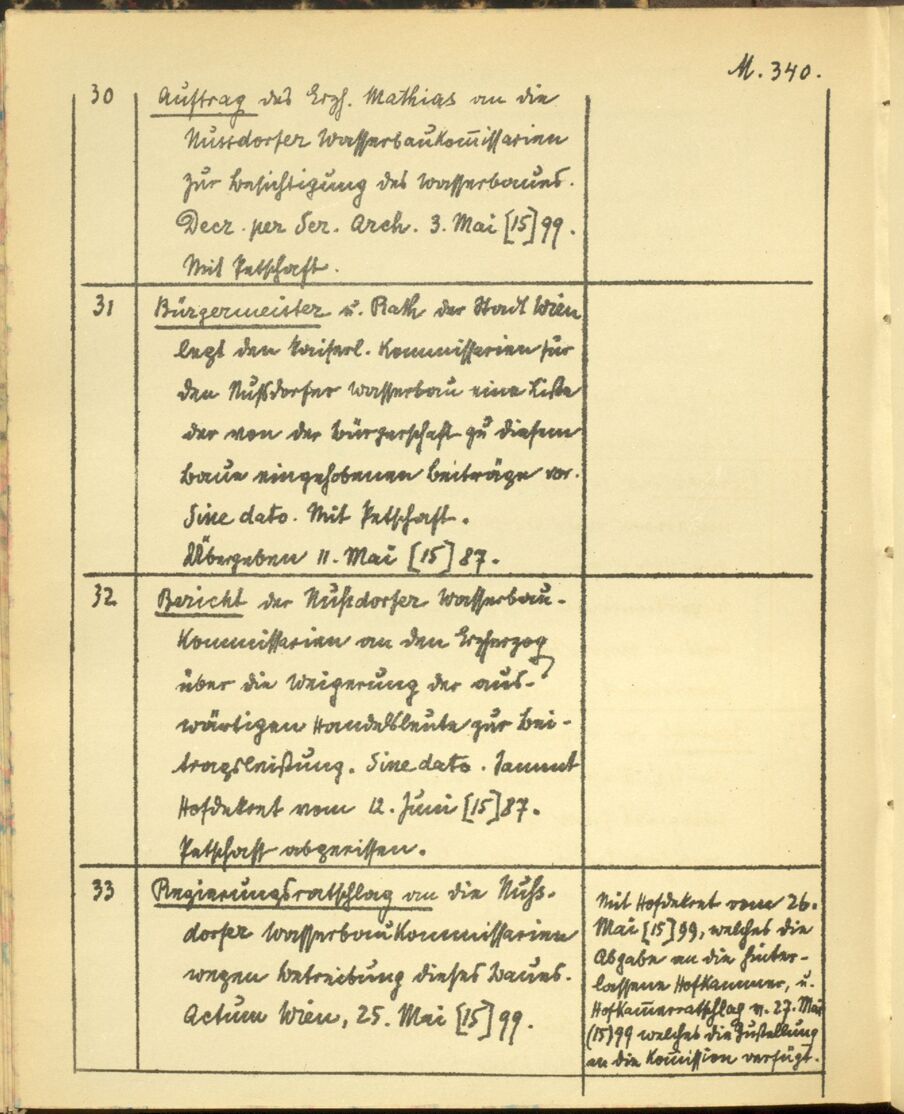 M. 340.
30 Auftrag des Erzh. Mathias an die
Nussdorfer Wasserbaukom̅issarien
zur Besichtigung des Wasserbaues.
Decr. per Ser. Arch. 3. Mai [15]99.
Mit Petschaft.
31 Bürgermeister u. Rath der Stadt Wien
legt den kaiserl. Kommissarien für
den Nußdorfer Wasserbau eine Liste
der von der Bürgerschaft zu diesem
Baue eingehobenen Beiträge vor.
Sine dato. Mit Petschaft.
Übergeben 11. Mai [15]87.
32 Bericht der Nußdorfer Wasserbau-
Kommissarien an den Erzherzog
über die Weigerung der aus-
wärtigen Handelsleute zur Bei-
tragsleistung. Sine dato. Sammt
Hofdekret vom 12. Juni [15]87.
Petschaft abgerissen.
33 Regierungsratschlag an die Nuß-
dorfer Wasserbaukommissarien
wegen Betreibung dieses Baues.
Actum Wien, 25. Mai [15]99.
Mit Hofdekret vom 26.
Mai [15]99, welches die
Abgabe an die hinter-
lassene Hofkammer, u.
Hofkam̅erratschlag v. 27. Mai
(15)99 welches die Zustellung
an die Kom̅ission verfügt.